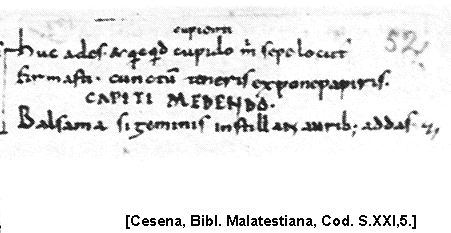 cupienti
huc ades cupido m̄ sepe locut
firmasti. cunctū teneris expone papiris.
CAPITI MEDENDO.
Balsama si geminis instillans aurib; addas
52
[Cesena, Bibl. Malatestiana, Cod. S.XXI,5.]